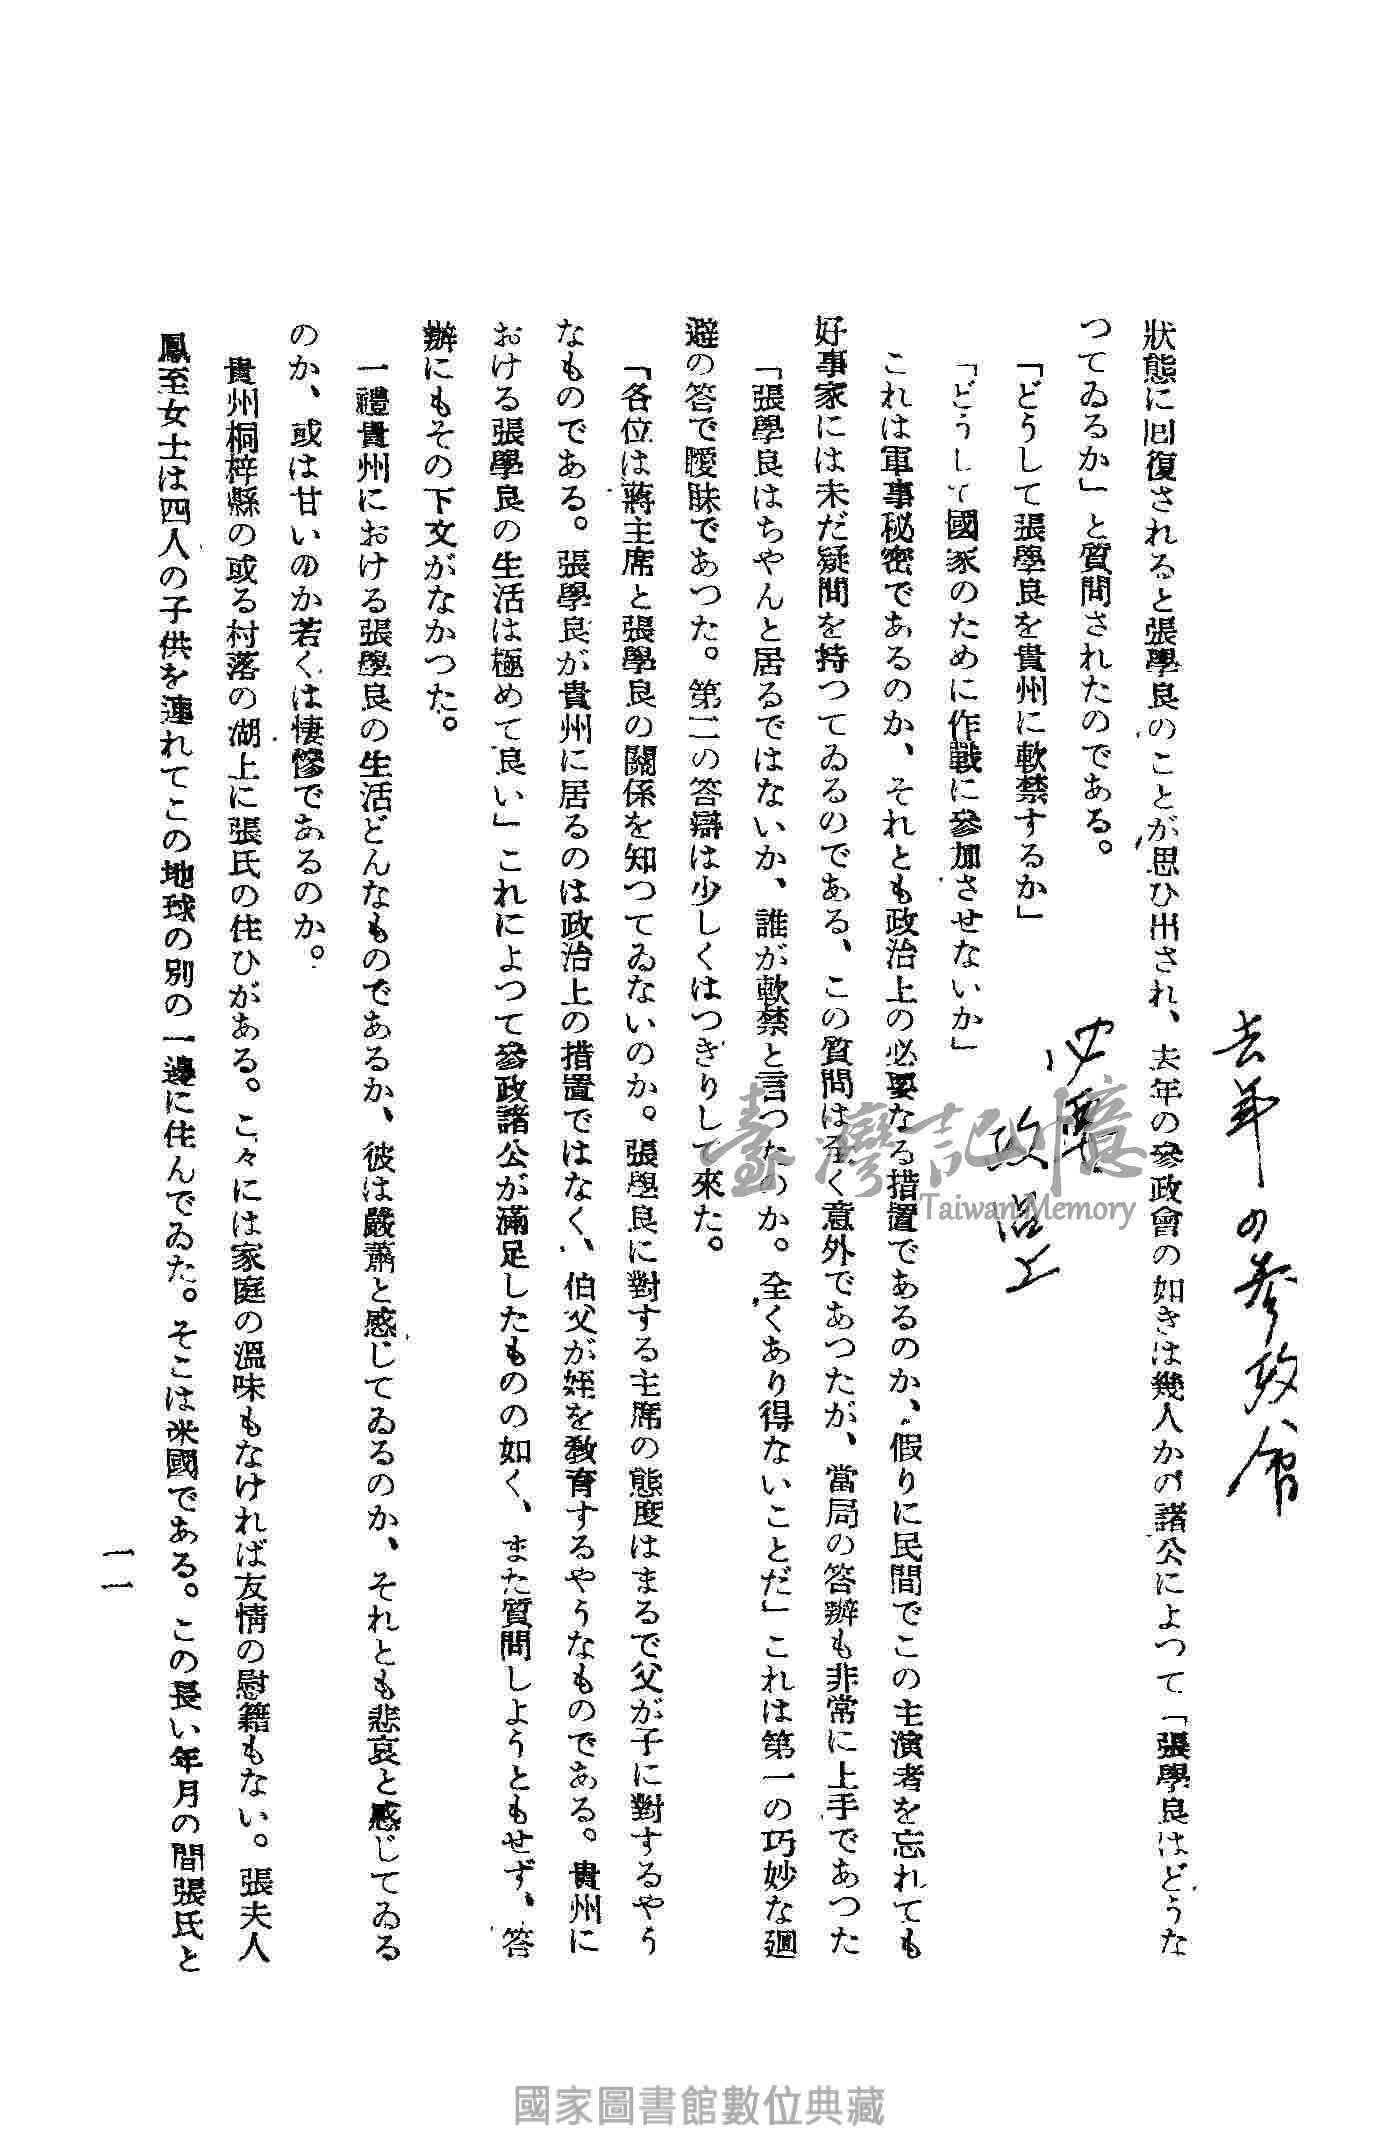 去年の参政会
狀態に囘復されると張學良のことが思ひ出され、去年の參政會の如きは幾人かの諸公によつて「張學良はどうな
つてゐるか」と質問されたのである。
必要
政治上
「どうして張學良を貴州に軟禁するか」
「どうして國家のために作戰に參加させないか」
これは軍事秘密であるのか、それとも政治上の必要なる措置であるのか、假りに民間でこの主演者を忘れても
好事家には未だ疑問を持つてゐるのである、この質問は全く意外であつたが、當局の答辨も非常に上手であつた
「張學良はちやんと居るではないか、誰が軟禁と言つたのか。全くあり得ないことだ」これは第一の巧妙な廻
避の答で曖昧であつた。第二の答辯は少しくはつきりして來た。
「各位は蔣主席と張學良の關係を知つてゐないのか。張學良に對する主席の態度はまるで父が子に對するやう
なものである。張學良が貴州に居るのは政治上の措置ではなく、伯父が姪を敎育するやうなものである。貴州に
おける張學良の生活は極めて良い」これによつて參政諸公が滿足したものの如く、また質問しようともせず、答
辨にもその下文がなかつた。
一禮貴州における張學良の生活どんなものであるか、彼は嚴肅と感じてゐるのか、それとも悲哀と感じてゐる
のか、或は甘いのか若くは悽慘であるのか。
貴州桐梓縣の或る村落の湖上に張氏の住ひがある。こゝには家庭の溫味もなければ友情の慰籍もない。張夫人
鳳至女士は四人の子供を連れてこの地球の別の一邊に住んでゐた。そこは米國である。この長い年月の間張氏と
一一
臺灣記憶
Taiwan Memory
國家圖書館數位典藏